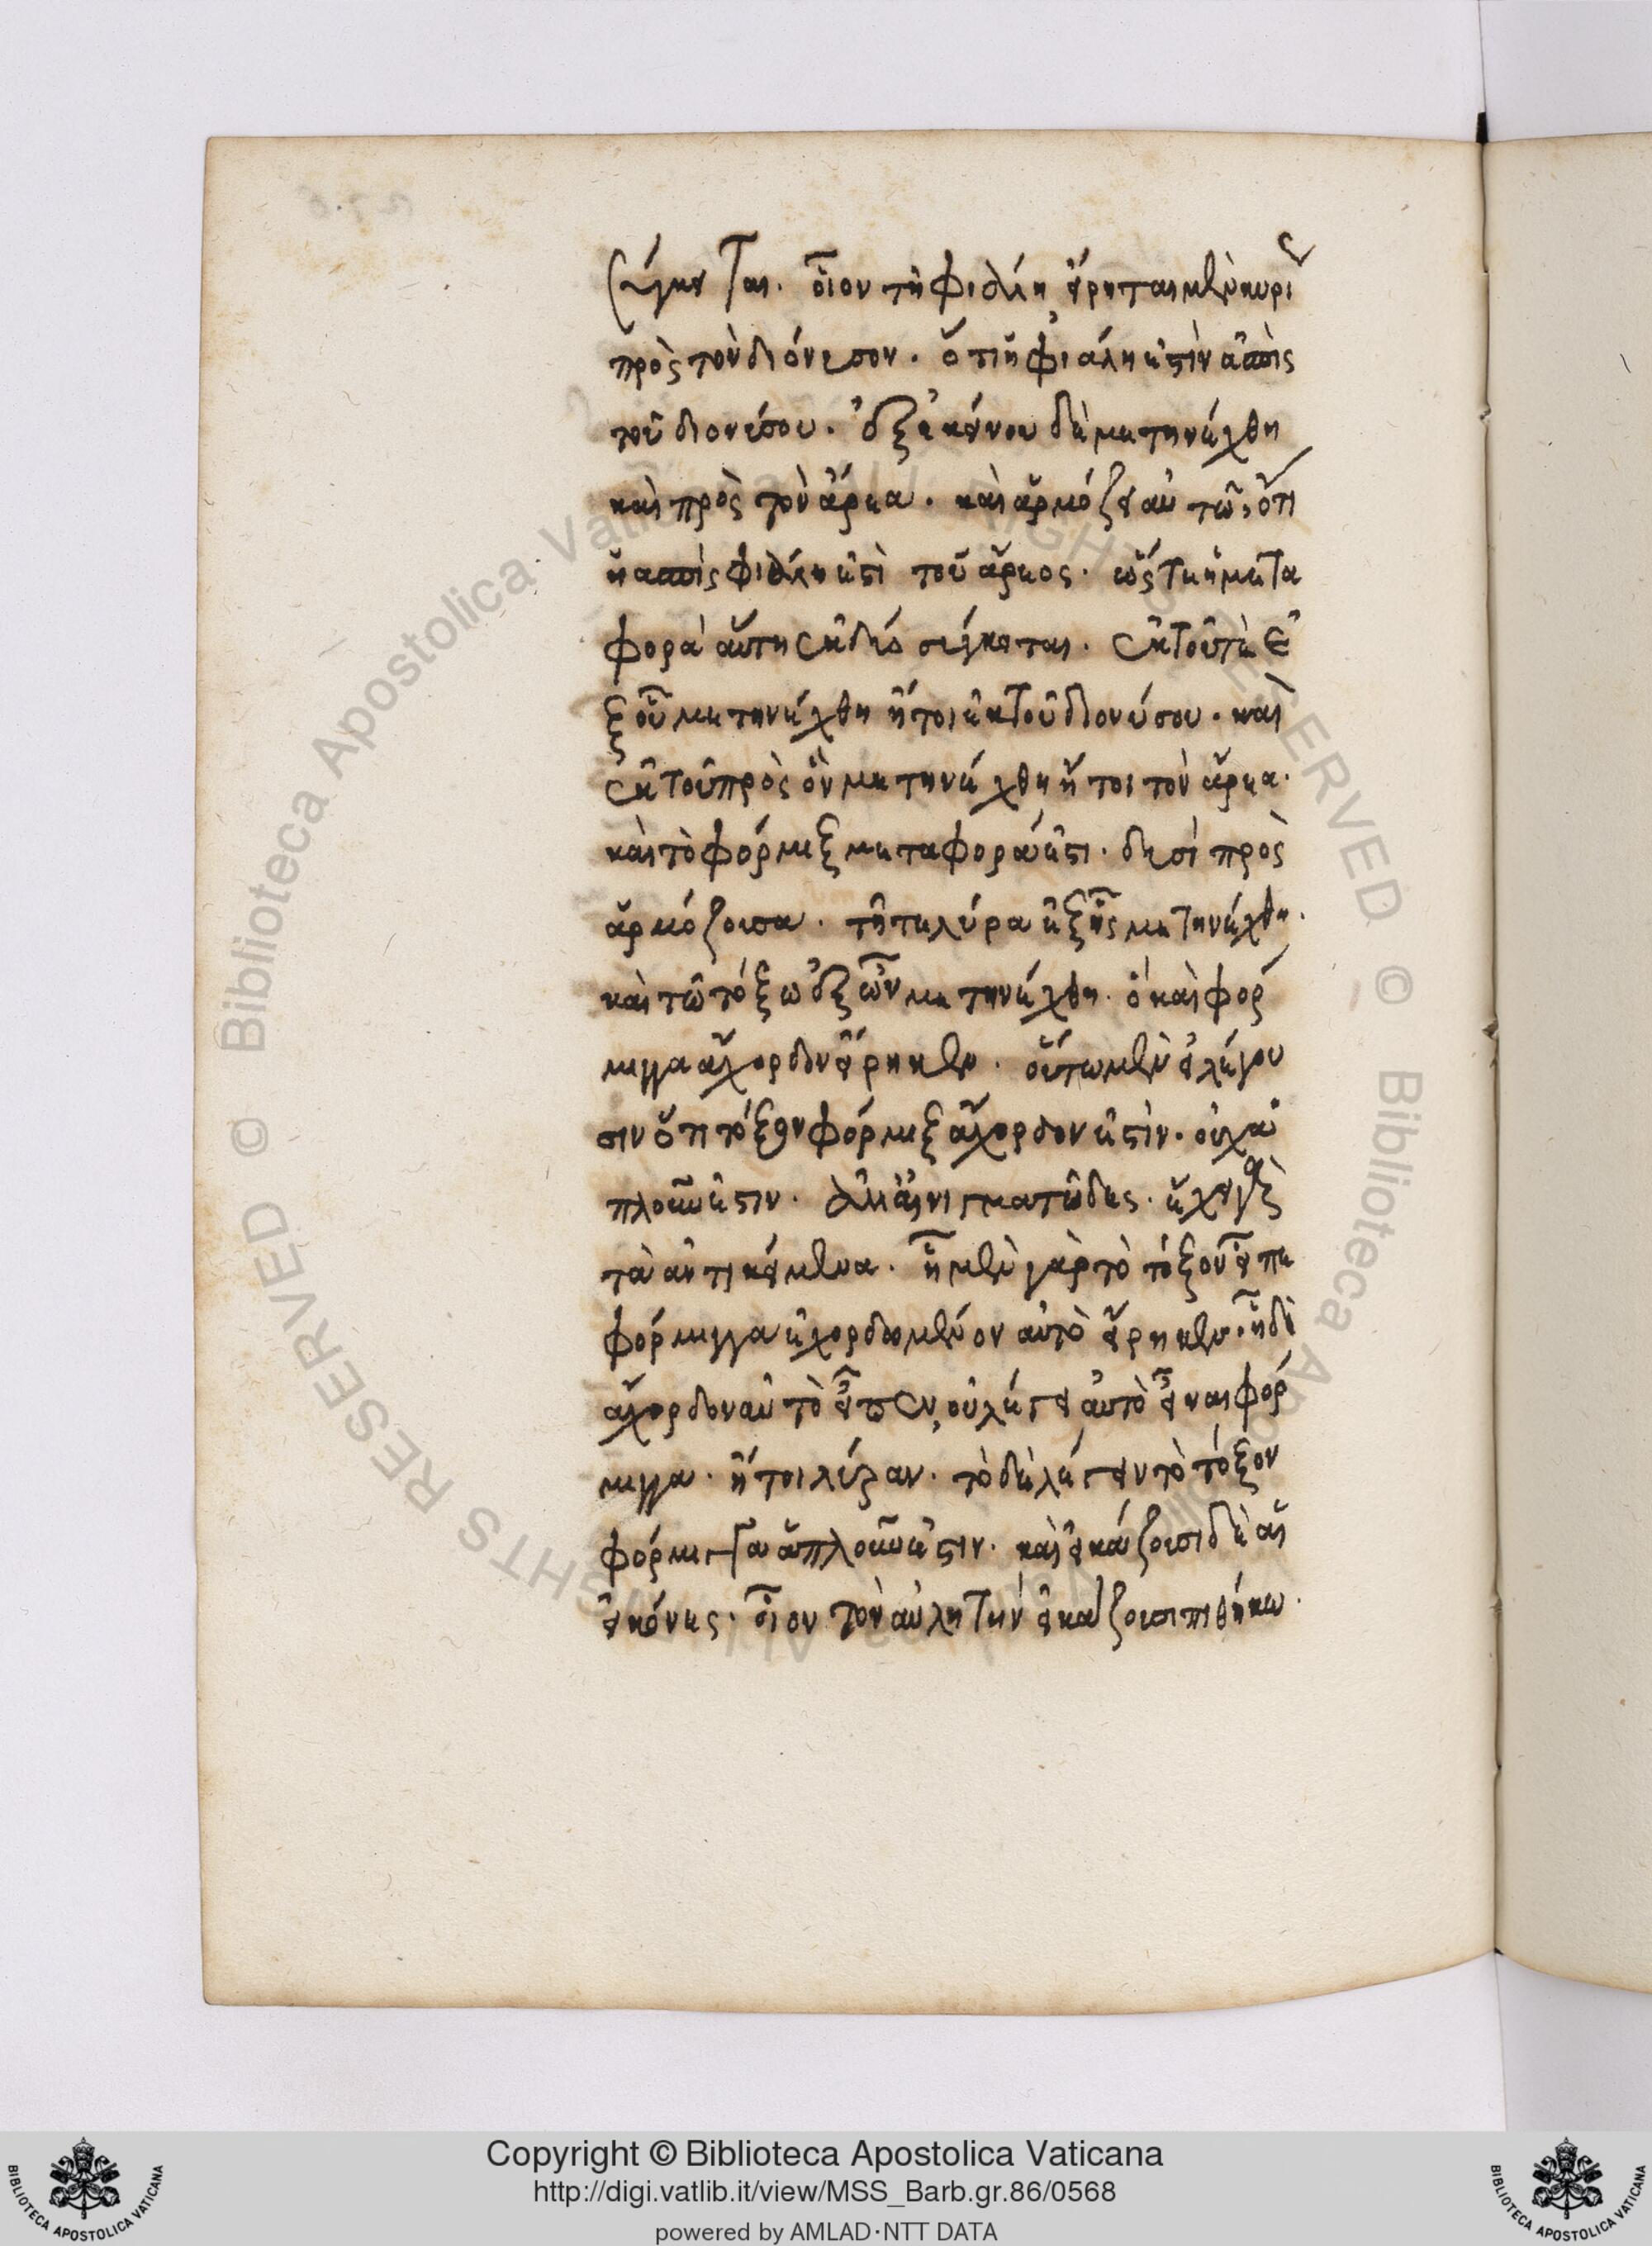 σύγκειται. οἷον τῇ φιάλῃ εἴρηται μὲν κυρί
πρὸς τὸν διόνυσον. ὅτι ἡ φιάλη ἐστὶν ἀσπὶς
τοῦ διονύσου. ἐξ ἐκείνου δὲ μετηνέχθη
καὶ πρὸς τὸν ἄρεα. καὶ ἁρμόζει αὐτῶ, ὅτι
ἡ ἀσπὶς φιάλη ἐστὶ τοῦ ἄρεος. ὥστε ἡ μετα
φορὰ αὕτη ἐκ δύο σύγκειται. ἐκ τοῦ τὲ ἐ
ξ οὗ μετηνέχθη ἤτοι ἐκ τοῦ διονύσου. καὶ
ἐκ τοῦ πρὸς ὃν μετηνέχθη ἤτοι τὸν ἄρεα.
καὶ τὸ φόρμιξ μεταφορά ἐστι. δυσὶ πρὸς
ἁρμόζουσα. τῇ τε λύρα ἐξ ἧς μετηνέχθη.
καὶ τῶ τόξω ἐξ ὧν μετηνέχθη. ὁ καὶ φόρ
μιγγα ἄχορδον εἴρηκεν. οὕτω μὲν εἰ λέγου
σιν ὅτι τόξον φόρμιξ ἄχορδον ἐστὶν. οὐχ ἁ
πλοῦν ἐστιν. ἀλλ' αἰνιγματῶδες. ἔχει γὰρ
τὰ ἀντικείμενα. ᾗ μὲν γὰρ τὸ τόξον εἶπε
φόρμιγγα ἐχορδωμένον αὐτὸ εἴρηκεν. ᾗ δὲ
ἄχορδον αὐτὸ εἶπεν, οὐ λέγει αὐτὸ εἶναι φόρ
μιγγα. ἤτοι λύραν. τὸ δὲ λέγειν τὸ τόξον
φόρμιγγα ἁπλοῦν ἐστιν. καὶ εἰκάζουσι δὲ αἱ
εἰκόνες. οἷον τὸν αὐλητὴν εἰκάζουσι πιθήκω.
Copyright © Biblioteca Apostolica Vaticana
http://digi.vatlib.it/view/MSS_Barb.gr.86/0568
powered by AMLAD·NTT DATA